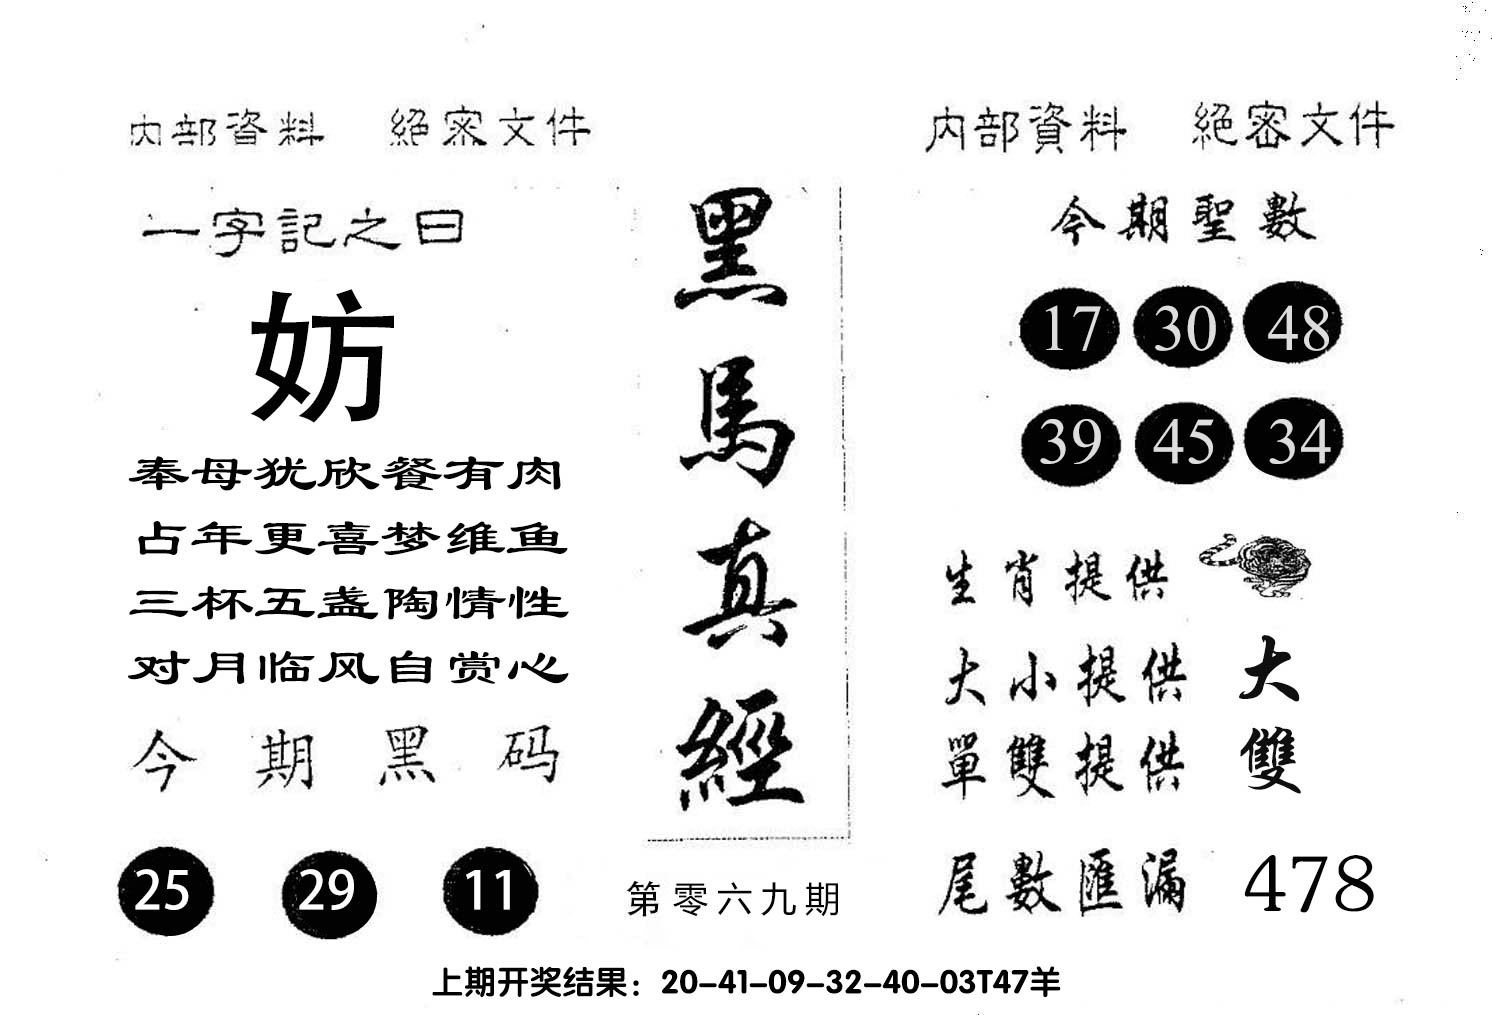 內部資料 絕密文件
一字記之曰
妨
奉母犹欣餐有肉
占年更喜梦维鱼
三杯五盏陶情性
对月临风自赏心
今期黑码
25 29 11
黑馬真經
第零六九期
內部資料 絕密文件
今期聖數
17 30 48
39 45 34
生肖提供
大小提供 大
單雙提供 雙
尾數匯漏 478
上期开奖结果：20-41-09-32-40-03T47羊